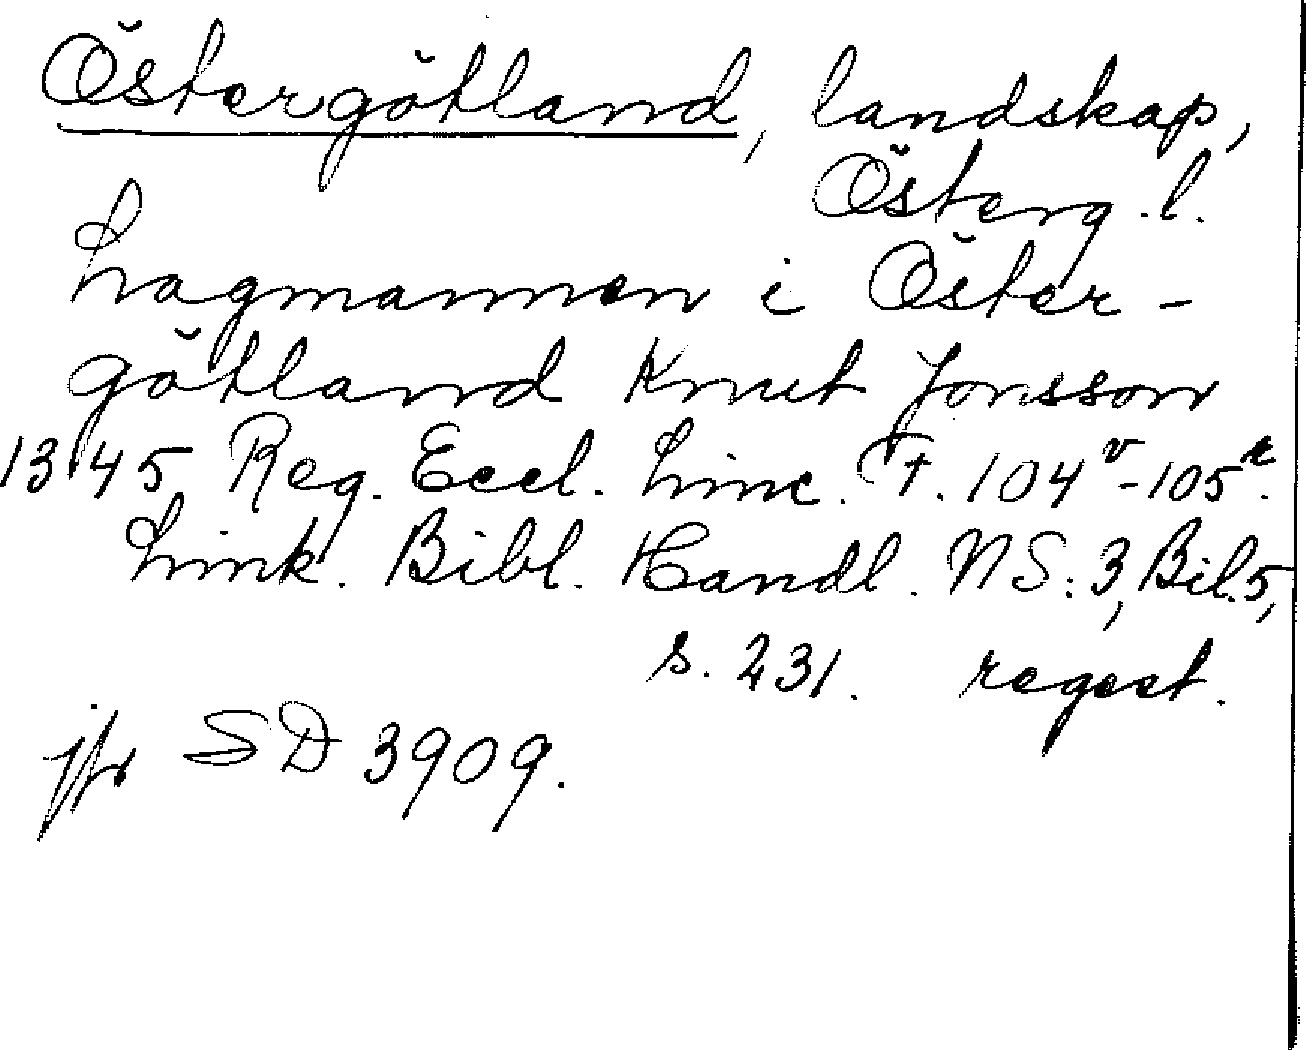 Östergötland, landskap,
Österg. l.
Lagmannen i Öster-
götland Knut Jonsson
1345 Reg. Eccl. Linc. F. 104v-105r.
Link. Bibl. Handl. NS: 3, Bil. 5,
s. 231. regest.
jfr SD 3909.